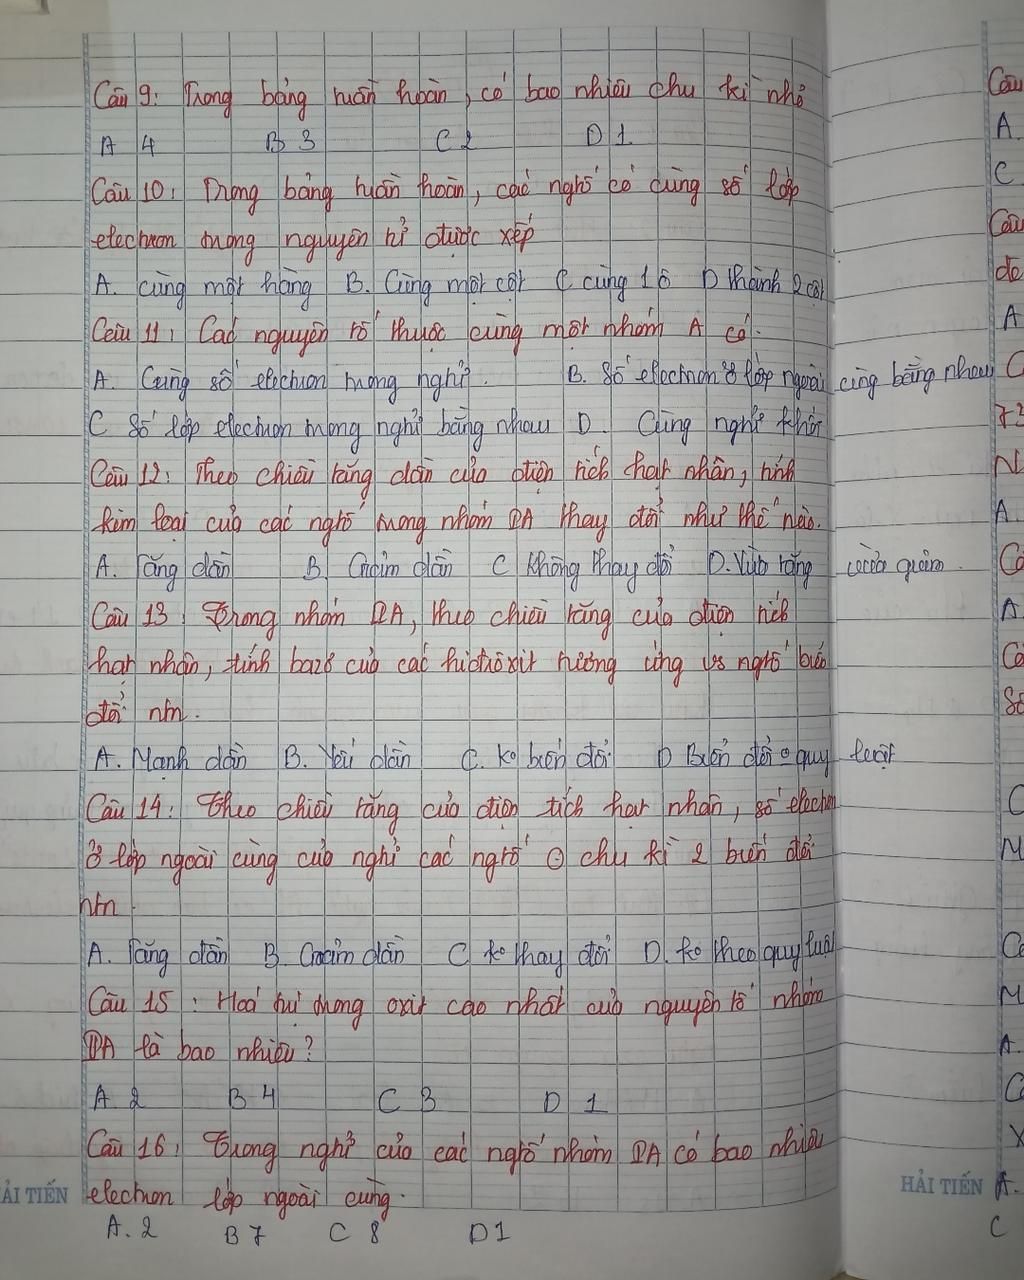 Câu 9: Trong bảng tuần hoàn, có bao nhiêu chu kì nhỏ
A 4 B 3 C 2 D 1
Câu 10: Trong bảng tuần hoàn, các ngtố có cùng số lớp
electron trong nguyên tử được xếp
A. cùng một hàng B. Cùng một cột C cùng 1 ô D thành 2 cột
Câu 11: Các nguyên tố thuộc cùng một nhóm A có.
A. Cùng số electron trong ngtử. B. Số electron ở lớp ngoài cùng bằng nhau
C Số lớp electron trong ngtử bằng nhau D. Cùng ngtử khối
Câu 12: Theo chiều tăng dần của điện tích hạt nhân, tính
kim loại của các ngtố trong nhóm IA thay đổi như thế nào.
A. Tăng dần B. Giảm dần C không thay đổi D. Vừa tăng vừa giảm.
Câu 13: Trong nhóm IA, theo chiều tăng của điện tích
hạt nhân, tính bazơ của các hiđroxit tương ứng vs ngtố biến
đổi ntn.
A. Mạnh dần B. Yếu dần C. ko biến đổi D Biến đổi quy luật
Câu 14: Theo chiều tăng của điện tích hạt nhân, số electron
ở lớp ngoài cùng của ngtử các ngtố chu kì 2 biến đổi
ntn.
A. Tăng dần B. Giảm dần C ko thay đổi D. ko theo quy luật
Câu 15: Hoá trị trong oxit cao nhất của nguyên tố nhóm
IA là bao nhiêu?
A 2 B 4 C 3 D 1
Câu 16: Trong ngtử của các ngtố nhóm IA có bao nhiêu
electron lớp ngoài cùng.
A. 2 B 7 C 8 D 1
ẢI TIẾN
HẢI TIẾN
Câu
A.
C
Câu
A
C
A.
A.
C
M
M
A.
A.
C